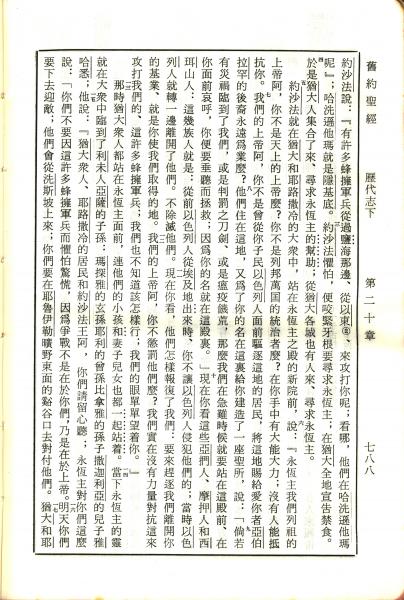 舊約聖經　歷代志下　第二十章　七八八
約沙法說：『有許多蜂擁軍兵從過鹽海那邊、從以東④、來攻打你呢；看哪，他們在哈洗遜他瑪
呢』；哈洗遜他瑪就是隱基底。約沙法懼怕，便咬緊牙根要尋求永恆主；在猶大全地宣告禁食。
於是猶大人集合了來、尋求永恆主的幫助；從猶大各城也有人來、尋求永恆主。
約沙法就在猶大和耶路撒冷的大衆中，站在永恆主之殿的新院前，說：『永恆主我們列祖的
上帝阿，你不是天上的上帝麼？你不是列邦萬國的統治者麼？在你手中有大能大力；沒有人能抵
抗你。我們的上帝阿，你不是曾從你子民以色列人面前驅逐這地的居民，將這地賜給愛你者亞伯
拉罕的後裔永遠爲業麼？他們住在這地，又爲了你的名在這裏給你建造了一座聖所，說：「倘若
有災禍臨到了我們，或是判罰之刀劍、或是瘟疫饑荒，那麼我們在急難時候就要站在這殿前、在
你面前哀呼，你便要垂聽而拯救；因爲你的名就在這殿裏。」現在你看這些亞捫人、摩押人和西
珥山人：這幾族人就是：從前以色列人從埃及地出來時、你不讓以色列人侵犯他們的；當時以色
列人就轉一邊離開了他們。不除滅他們。現在你看，他們怎樣報復了我們：要來趕逐我們離開你
的基業、就是你使我們取得的地。我們的上帝阿，你不懲罰他們麼？我們實在沒有力量對抗這來
攻打我們的、這許多蜂擁軍兵；我們也不知道該怎樣行；我們的眼單單望着你。』
那時猶大衆人都站在永恆主面前，連他們的小孩和妻子兒女也都一起站着。當下永恆主的靈
就在大衆中臨到了利未人亞薩的子孫：瑪探雅的玄孫耶利的曾孫比拿雅的孫子撒迦利亞的兒子雅
哈悉；他說：『猶大衆人、耶路撒冷的居民和約沙法王阿，你們請留心聽；永恆主對你們這麼
說：「你們不要因這許多蜂擁軍兵而懼怕驚慌，因爲爭戰不是在於你們，乃是在於上帝。明天你們
要下去迎敵；他們會從洗斯坡上來；你們要在耶魯伊勒曠野東面的谿谷口去對付他們。猶大和耶